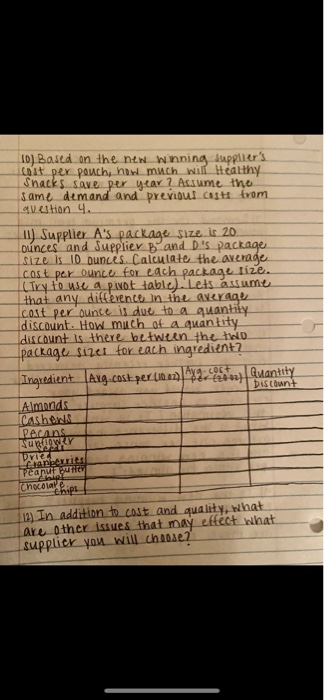 10) Based on the new winning supplier's
cost per pouch, how much will Healthy
Snacks save per year? Assume the
same demand and previous costs from
question 4.
11) Supplier A's package size is 20
ounces and Supplier B and D's package
size is 10 ounces. Calculate the average
cost per ounce for each package size.
(Try to use a pivot table). Lets assume
that any difference in the average
cost per ounce is due to a quantity
discount. How much of a quantity
discount is there between the two
package sizes for each ingredient?
Ingredient Avg. cost per (10 oz) Avg. cost per (20 oz) Quantity Discount
Almonds
Cashews
Pecans
Sunflower
Dried Cranberries
Peanut Butter Chips
Chocolate Chips
12) In addition to cost and quality, what
are other issues that may effect what
supplier you will choose?